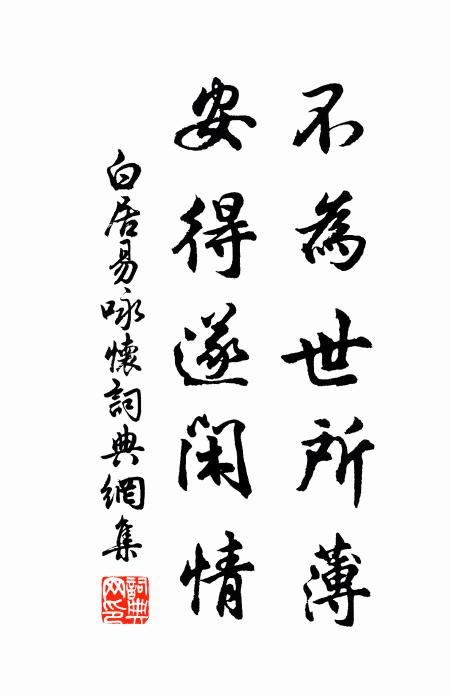 不為世所薄
安得遂閑情
白居易咏懷詞典網集
詞典
网印